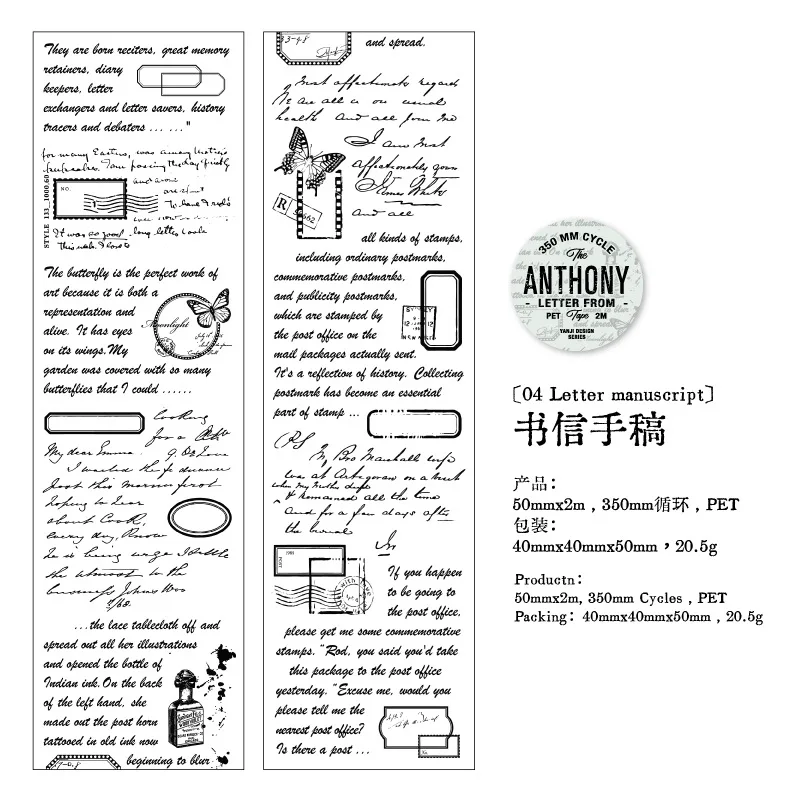 They are born reciters, great memory
retainers, diary
keepers, letter
exchangers and letter savers, history
tracers and debaters ... ..."
for many Easters, was among
I am passing the day
and
are
to have
It was so good. long letter
This week. I
NO.
STYLE 133_1000.60
The butterfly is the perfect work of
art because it is both a
representation and
alive. It has eyes
on its wings.My
garden was covered with so many
butterflies that I could ......
Moonlight
looking
for a
My dear Emma.
I wanted the
Just this morning first
hoping to hear
about Cook,
every day, Know
he is being urge
the utmost to the
business Johns
...the lace tablecloth off and
spread out all her illustrations
and opened the bottle of
Indian ink.On the back
of the left hand, she
made out the post horn
tattooed in old ink now
beginning to blur
and spread.
Most affectionate regards
We are all as on usual
health And all from me
I am Most
affectionately yours
James White
And all
R
662
all kinds of stamps,
including ordinary postmarks,
commemorative postmarks,
and publicity postmarks,
which are stamped by
the post office on the
mail packages actually sent.
It's a reflection of history. Collecting
postmark has become an essential
part of stamp ...
PS
My Bro Marshall wife
was at on a
when my Mother
& remained all the time
and for a few days after
the burial
If you happen
to be going to
the post office,
please get me some commemorative
stamps. "Rod, you said you'd take
this package to the post office
yesterday. "Excuse me, would you
please tell me the
nearest post office?
Is there a post ...
350 MM CYCLE
The
ANTHONY
LETTER FROM -
PET Tape 2M
YANJI DESIGN
SERIES
〔04 Letter manuscript〕
书信手稿
产品：
50mmx2m , 350mm循环 , PET
包装：
40mmx40mmx50mm , 20.5g
Productn:
50mmx2m, 350mm Cycles , PET
Packing: 40mmx40mmx50mm , 20.5g